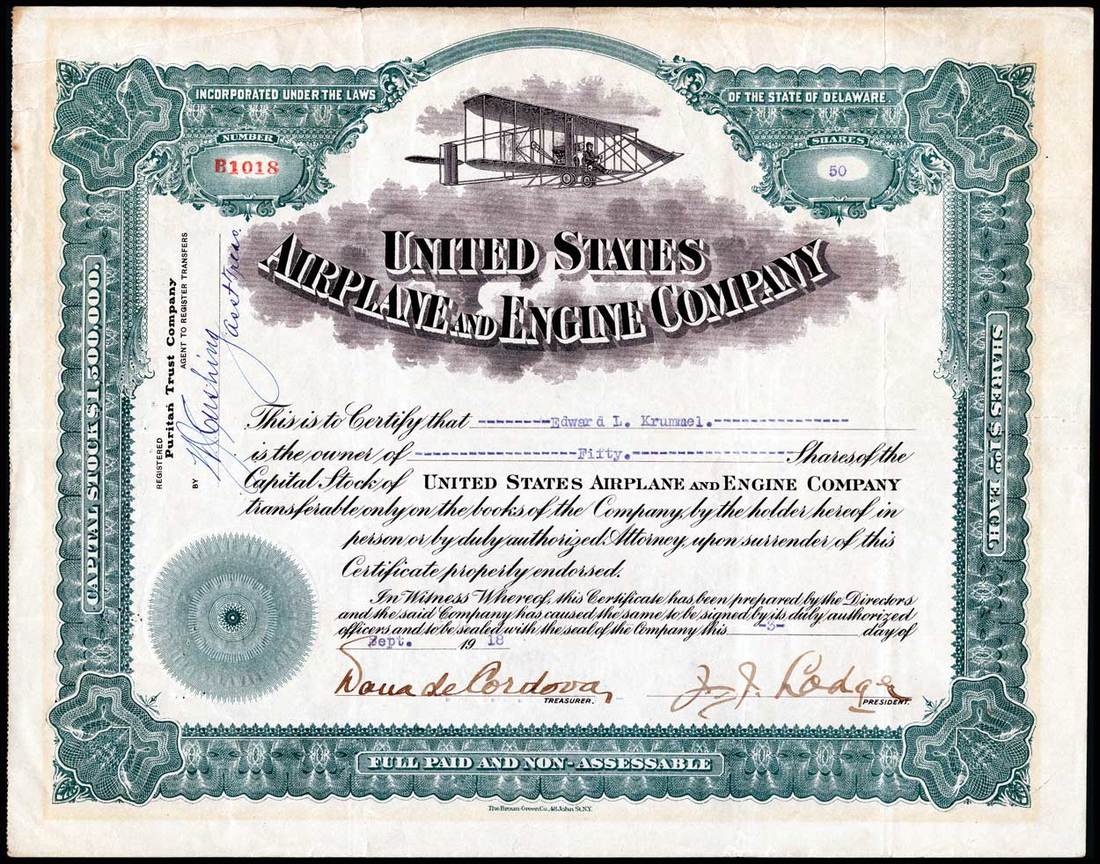 INCORPORATED UNDER THE LAWS
OF THE STATE OF DELAWARE.
NUMBER
B1018
SHARES
50
UNITED STATES
AIRPLANE AND ENGINE COMPANY
CAPITAL STOCK $1,500,000.
SHARES $1.00 EACH.
REGISTERED
Puritan Trust Company
AGENT TO REGISTER TRANSFERS
BY
Asst Treas.
This is to Certify that --------Edward L. Krummel.---------------
is the owner of ------------------Fifty.------------------ Shares of the
Capital Stock of UNITED STATES AIRPLANE AND ENGINE COMPANY
transferable only on the books of the Company, by the holder hereof in
person or by duly authorized Attorney, upon surrender of this
Certificate properly endorsed.
In Witness Whereof, this Certificate has been prepared by the Directors
and the said Company has caused the same to be signed by its duly authorized
officers and to be sealed with the seal of the Company this -3- day of
Sept. 1918
Dana de Cordova,
TREASURER.
J. J. Lodge
PRESIDENT.
FULL PAID AND NON-ASSESSABLE
The Broun-Green Co., 48 John St. N.Y.